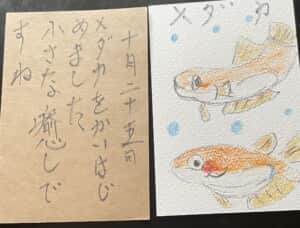 十月二十五日
メダカをかいはじ
めました、
小さな癒しで
すね
メダカ